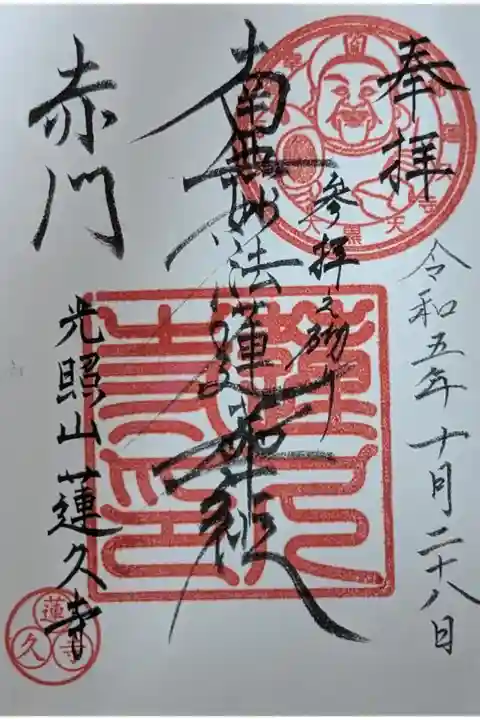 奉拝
令和五年十月二十八日
参拝之砌
南無妙法蓮華経
赤門
光照山蓮久寺
大黒天
蓮久寺